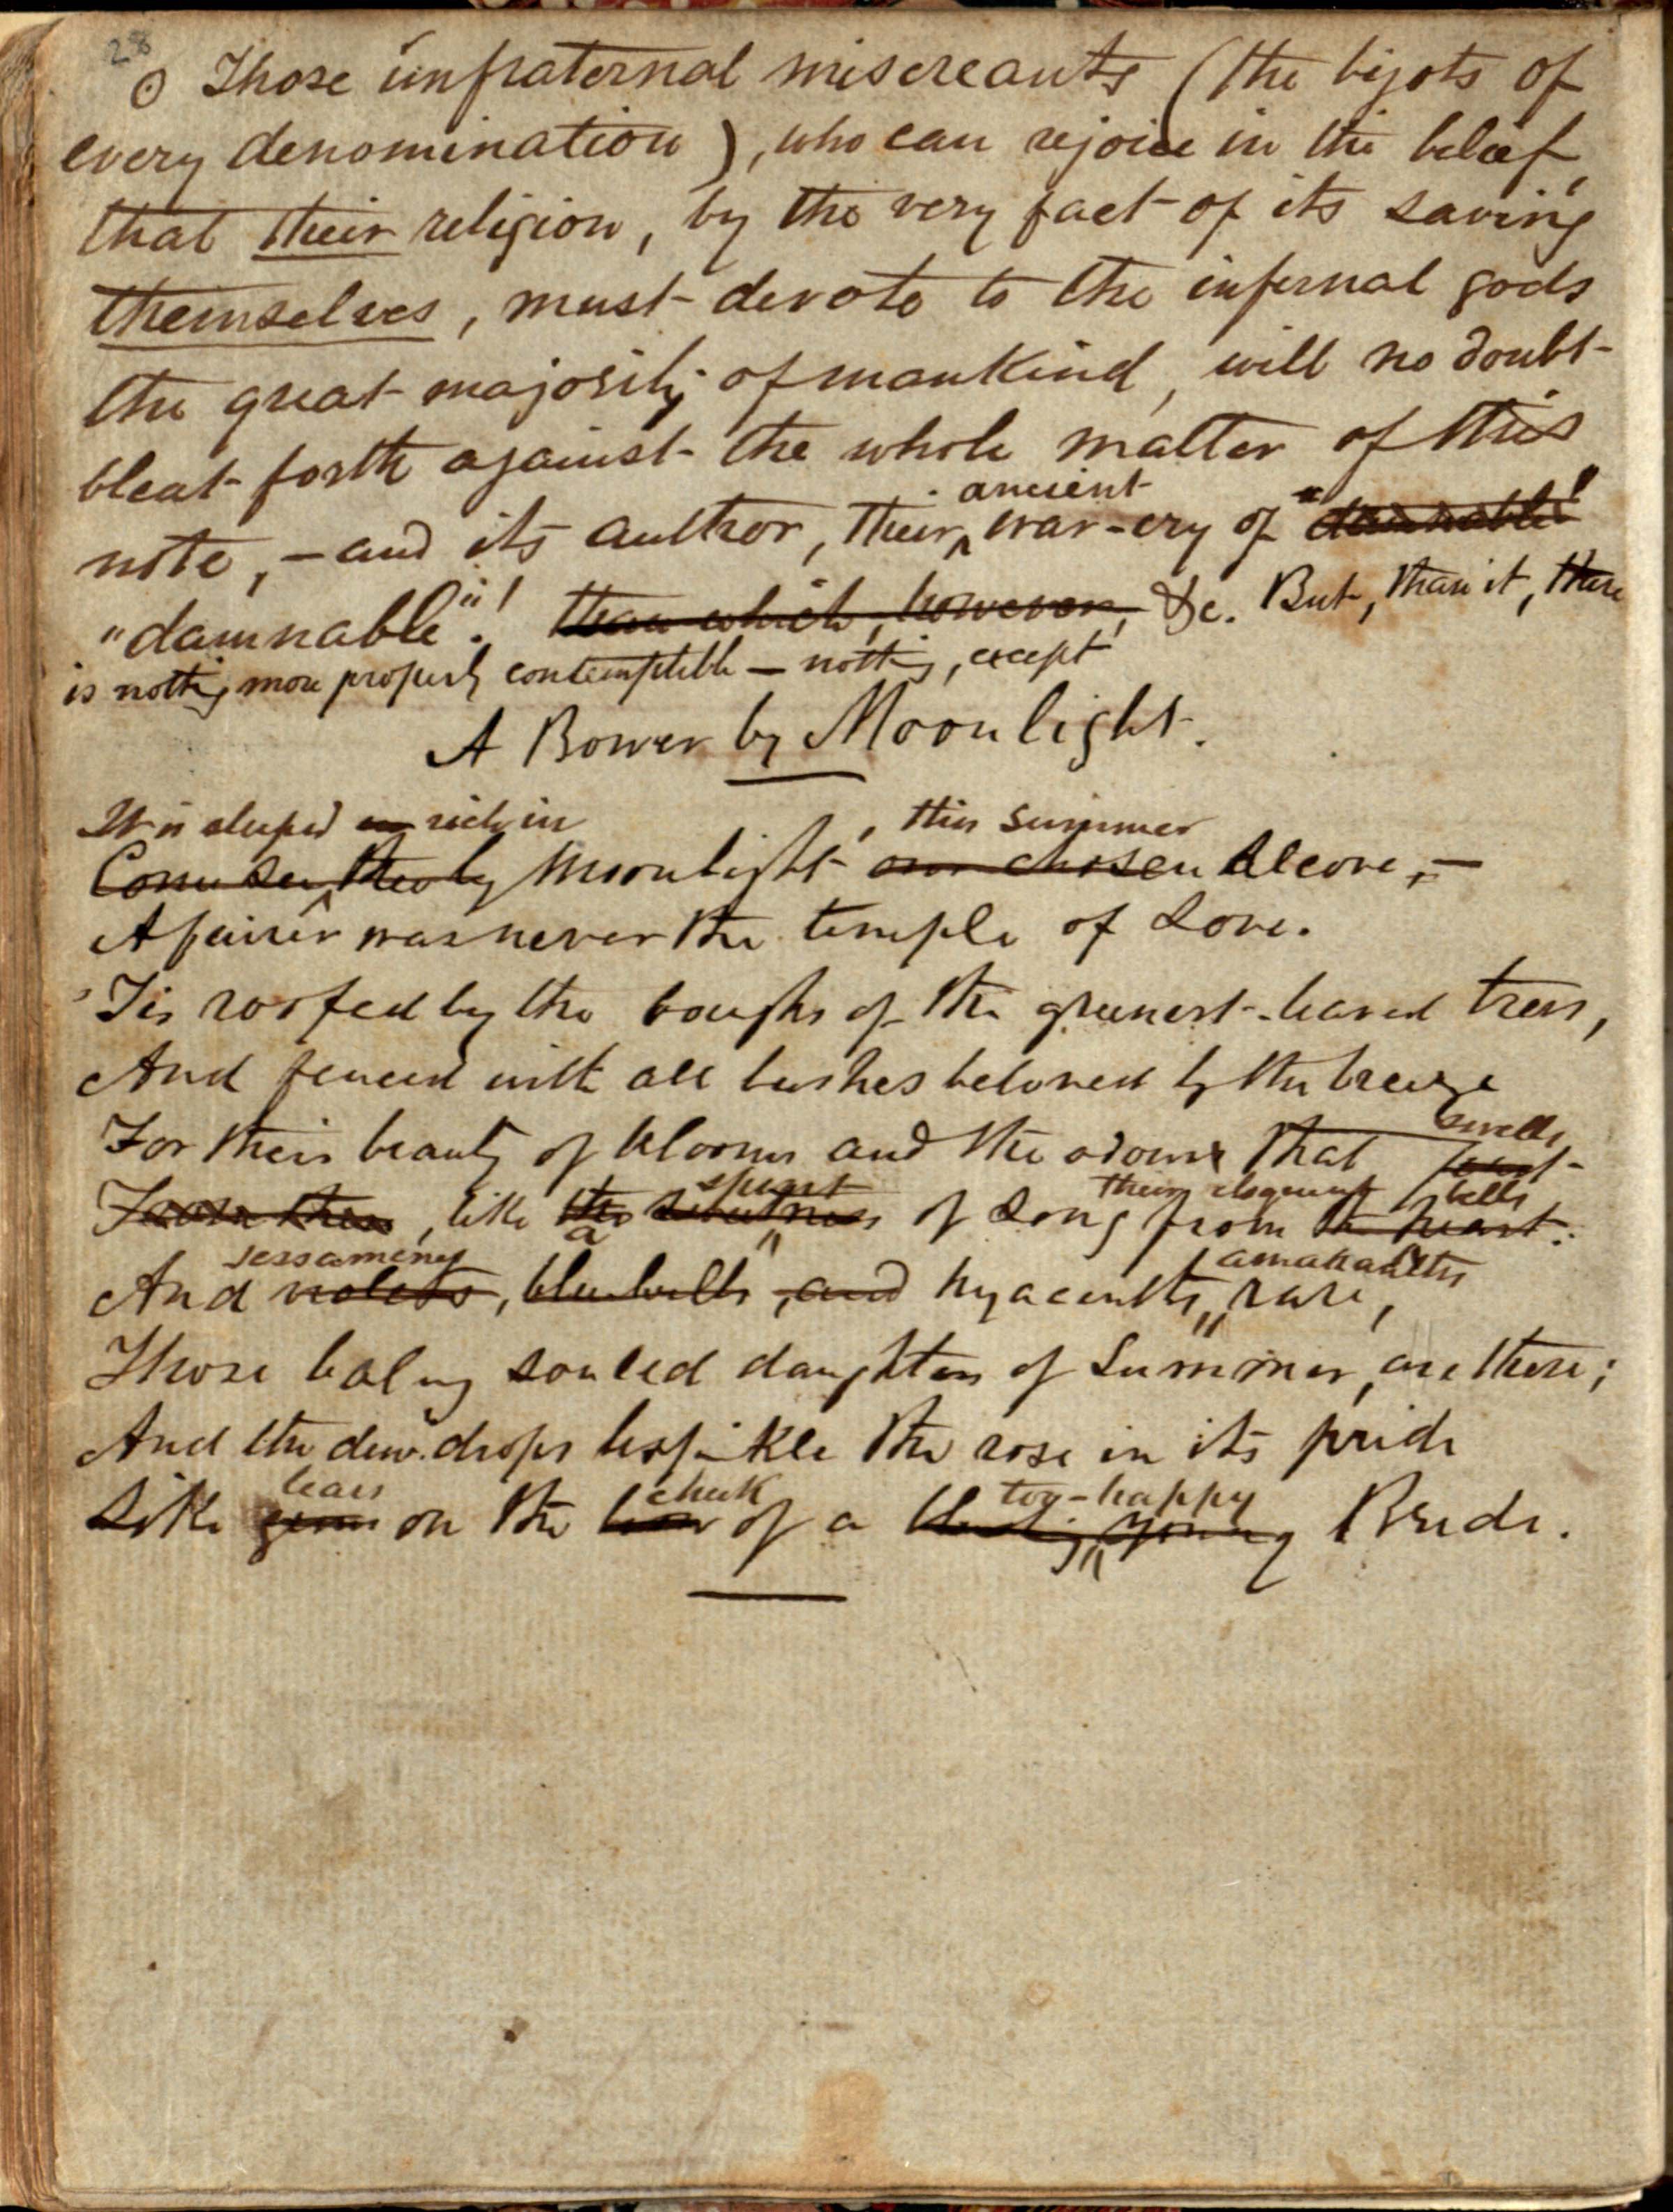 28
⊙ Those unfraternal miscreants (the bigots of
every denomination), who can rejoice in the belief,
that their religion, by the very fact of its saving
themselves, must devote to the infernal gods
the great majority of mankind, will no doubt
bleat forth against the whole matter of this
ancient
note, — and its author, their war-cry of "damnable"
"damnable"! than which, however, &c. But, than it, there
is nothing more properly contemptible — nothing, except
A Bower by Moonlight.
It is steeped rich in , this summer
Come see, the by Moonlight our chosen Alcove, —
A fairer was never the temple of Love.
'Tis roofed by the boughs of the greenest-leaved trees,
And fenced with all bushes beloved by the breeze
swells,
For their beauty of blooms and the odour that
spirit their eloquent bells
From them, like the sweetness of Song from the heart.
a
jessamines amaranths
And violets, bluebells, and hyacinths, rare,
Those balmy souled daughters of Summer, are there;
And the dew-drops besprinkle the rose in its pride
tears cheek too-happy
Like gems on the brow of a blushing young Bride.